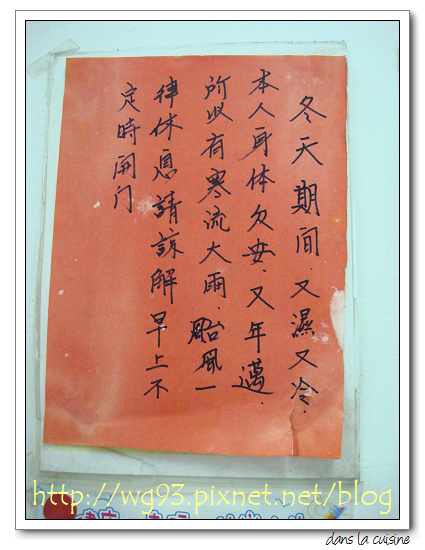 冬天期间.又濕又冷.
本人身体欠安.又年邁.
所以有寒流大雨.颱風一
律休息請諒解早上不
定時開门
http://wg93.pixnet.net/blog
dans la cuisine